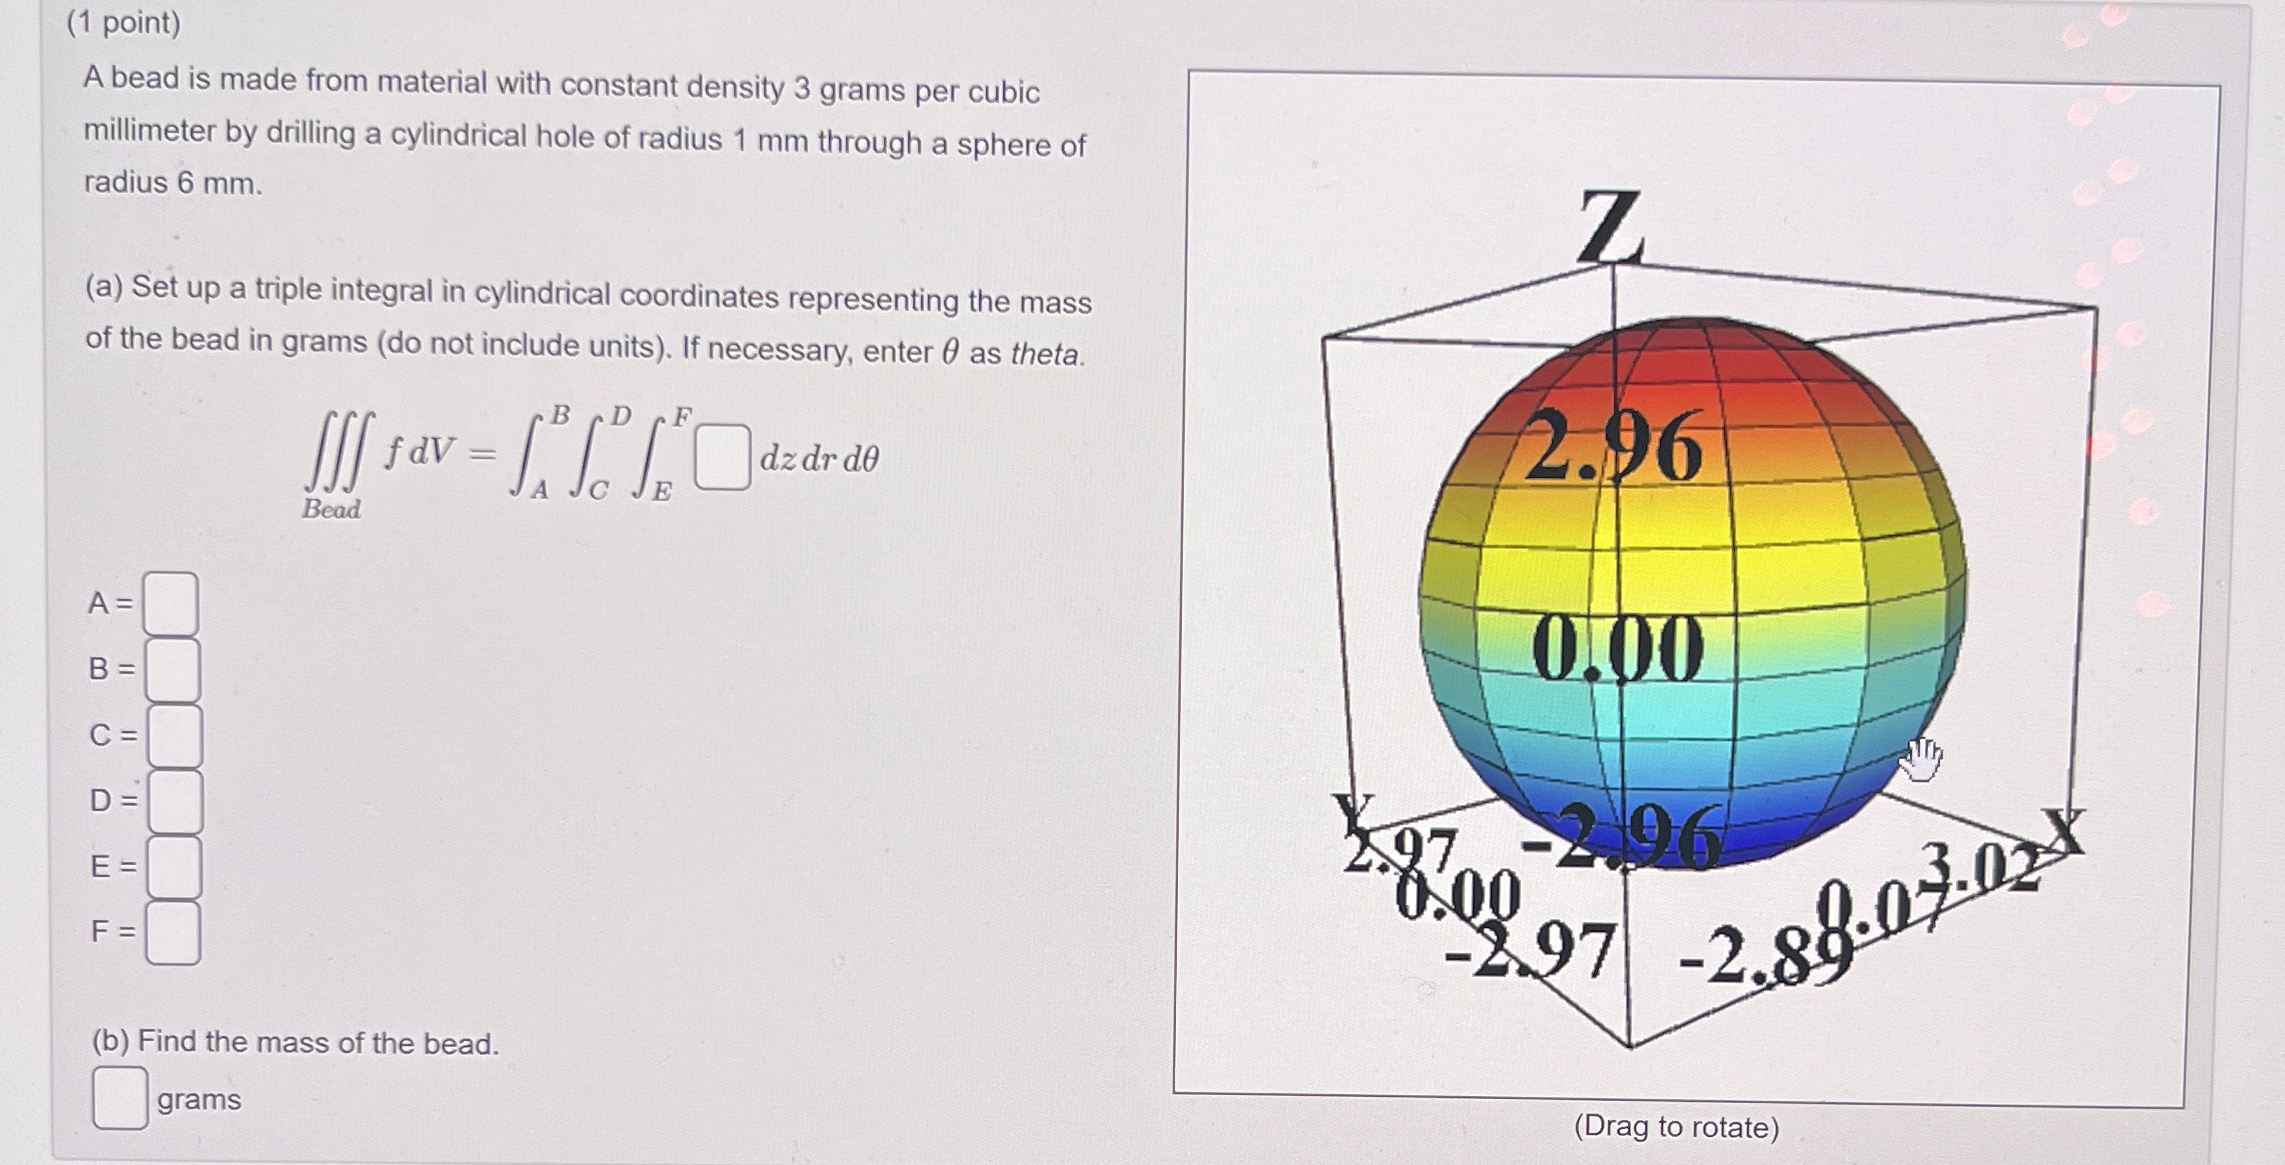 (1 point)
A bead is made from material with constant density 3 grams per cubic
millimeter by drilling a cylindrical hole of radius 1 mm through a sphere of
radius 6 mm.
(a) Set up a triple integral in cylindrical coordinates representing the mass
of the bead in grams (do not include units). If necessary, enter θ as theta.
∭_Bead f dV = ∫_A^B ∫_C^D ∫_E^F □ dz dr dθ
A =
B =
C =
D =
E =
F =
(b) Find the mass of the bead.
grams
Z
2.96
0.00
-2.96
Y
2.97
0.00
-2.97
X
3.02
0.07
-2.89
(Drag to rotate)